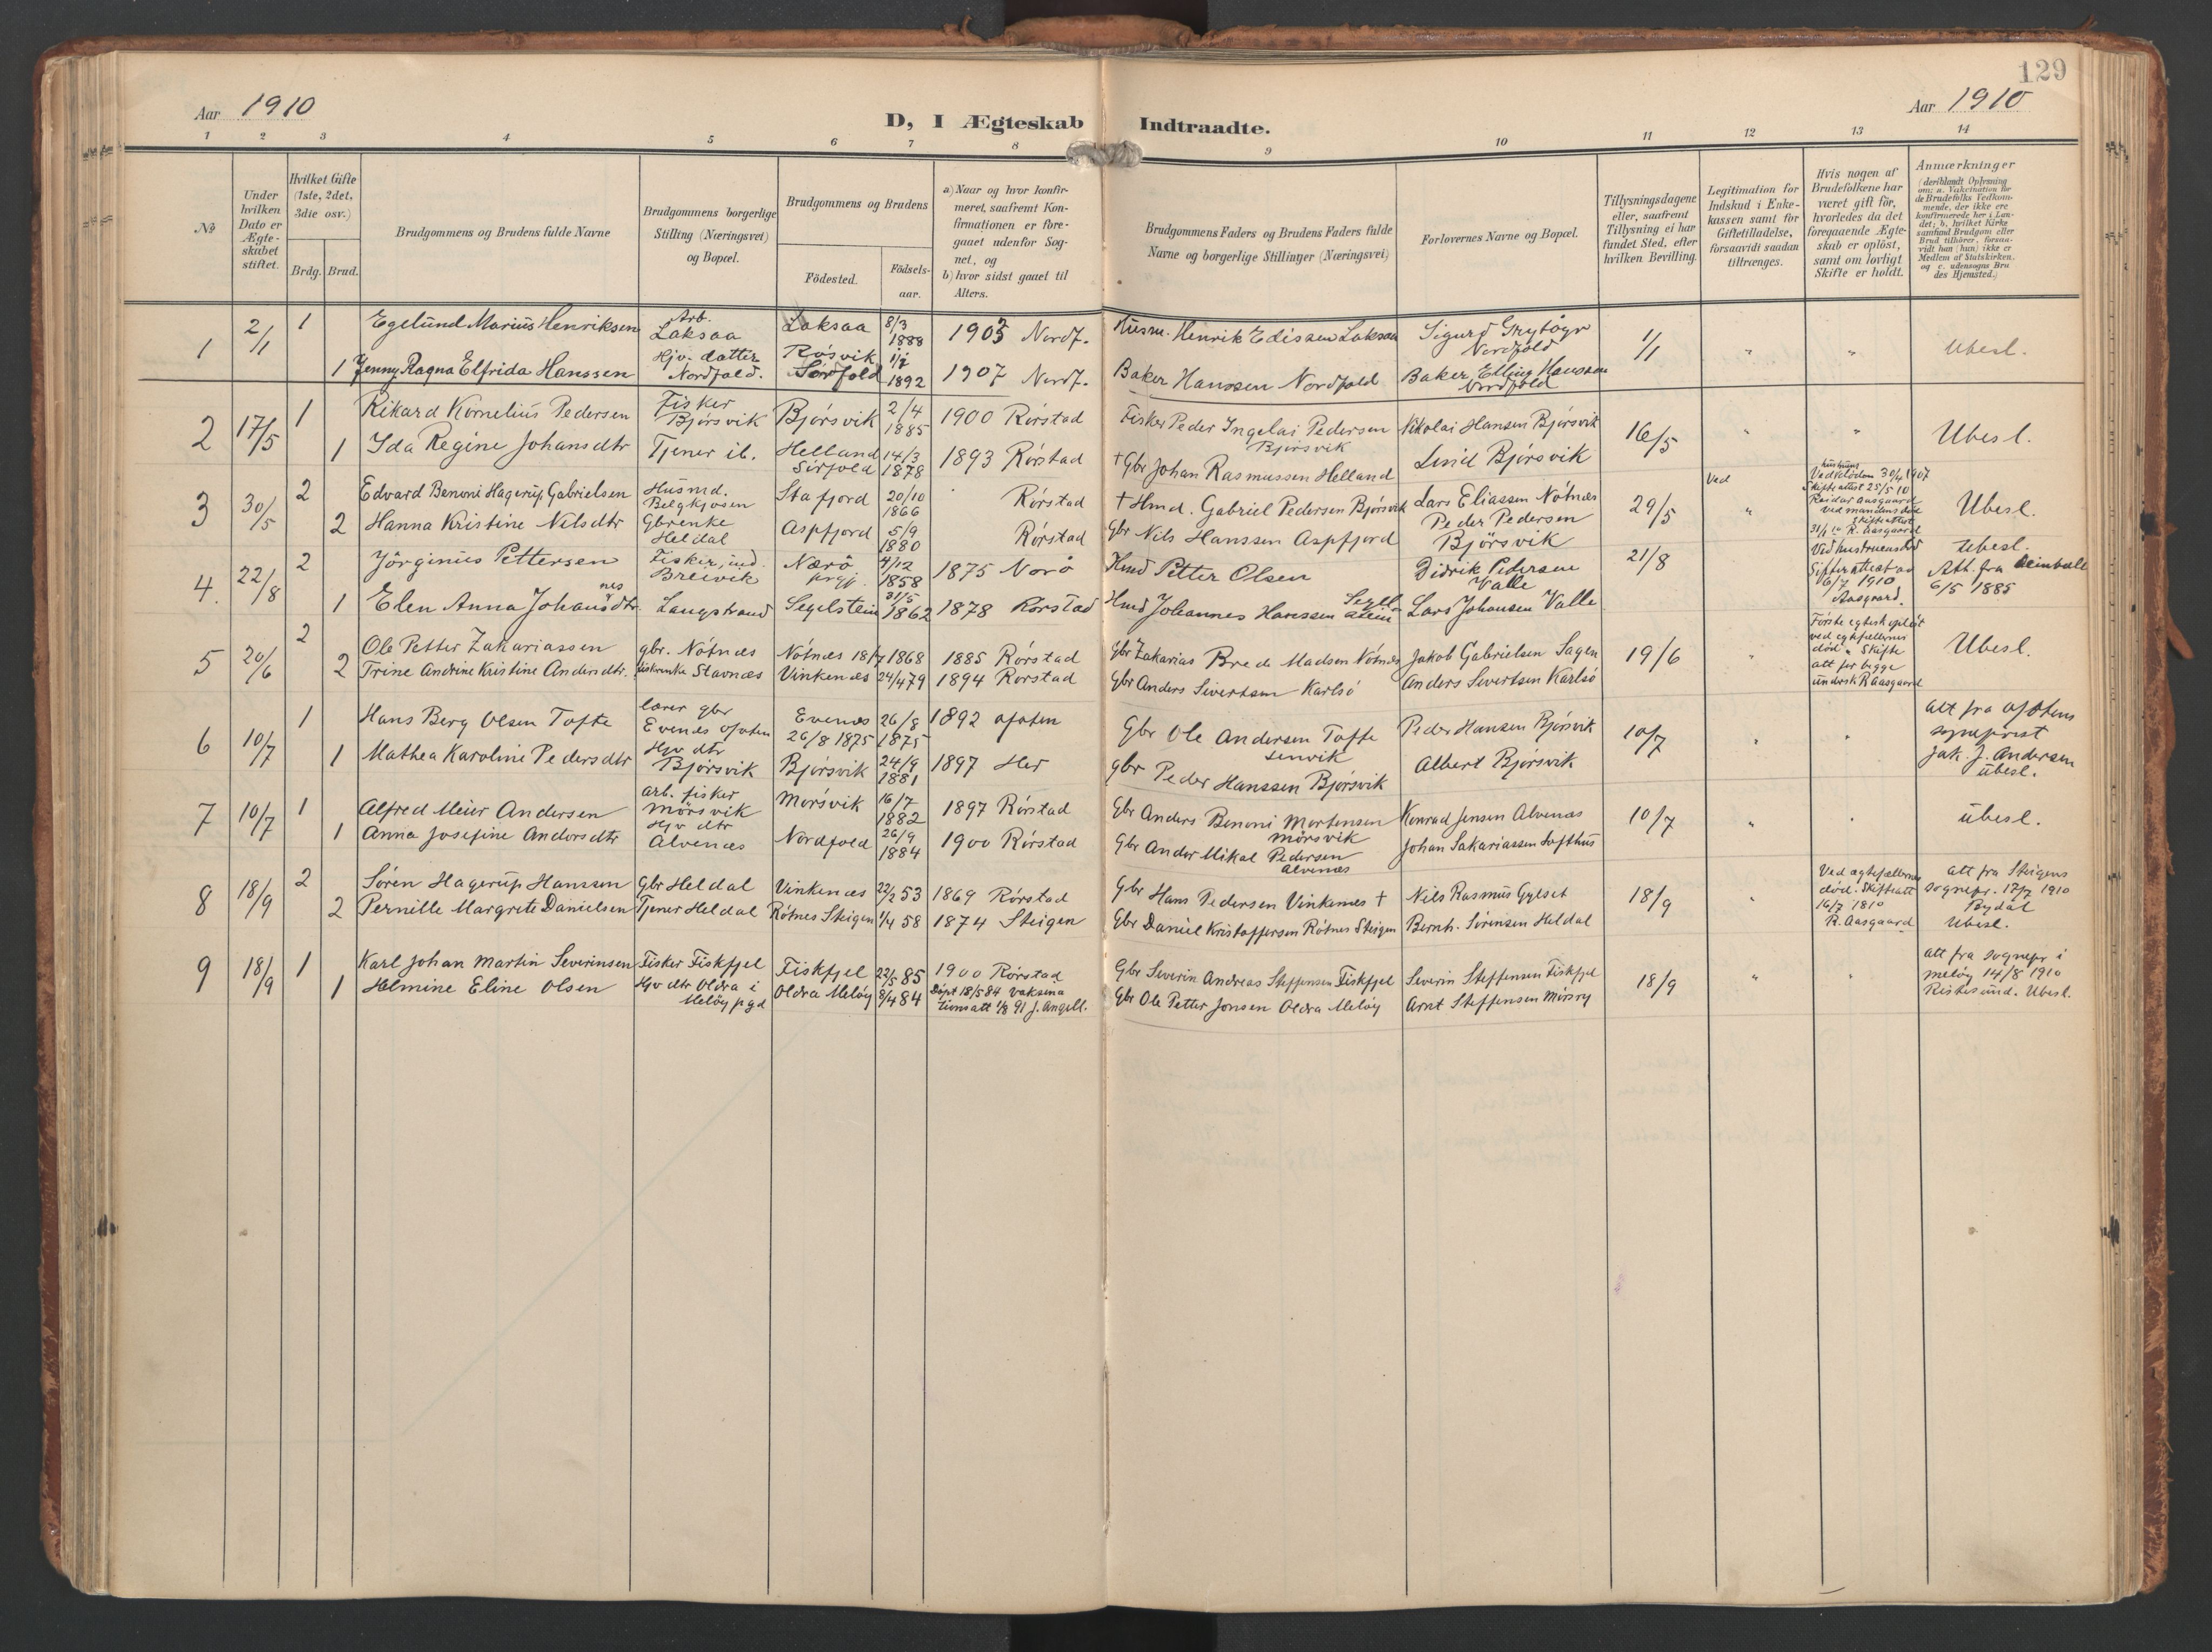 129
Aar 1910
D, I Ægteskab Indtraadte.
Aar 1910
1 2 3 4 5 6 7 8 9 10 11 12 13 14
№
Under hvilken Dato er Ægteskabet stiftet.
Hvilket Gifte (1ste, 2det, 3die osv.)
Brdg. Brud.
Brudgommens og Brudens fulde Navne
Brudgommens borgerlige Stilling (Næringsvei) og Bopæl.
Brudgommens og Brudens
Födested.
Födselsaar.
a) Naar og hvor konfirmeret, saafremt Konfirmationen er foregaaet udenfor Sognet, og
b) hvor sidst gaaet til Alters.
Brudgommens Faders og Brudens Faders fulde Navne og borgerlige Stillinger (Næringsvei)
Forlovernes Navne og Bopæl.
Tillysningsdagene eller, saafremt Tillysning ei har fundet Sted, efter hvilken Bevilling.
Legitimation for Indskud i Enkekassen samt for Giftetilladelse, forsaavidt saadan tiltrænges.
Hvis nogen af Brudefolkene har været gift för, hvorledes da det foregaaende Ægteskab er oplöst, samt om lovligt Skifte er holdt.
Anmærkninger
(deriblandt Oplysning om: a. Vakcination for de Brudefolks Vedkommende, der ikke ere konfirmerede her i Landet; b. hvilket Kirkesamfund Brudgom eller Brud tilhörer, forsaavidt han (hun) ikke er Medlem af Statskirken, og c. udensogns Brudes Hjemsted.)
1 2/1 1 Egelund Marius Henriksen Arb. Laksaa Laksaa 8/3 1888 1903 Nordf. Husm. Henrik Edissen Laksaa Sigurd Grytøyr Nordfold 1/1 " " Ubesl.
1 Jenny Ragna Elfrida Hanssen Hjv. datter Nordfold. Røsvik Sørfold 1892 1907 Nordf. Baker Hanssen Nordfold Baker Elling Hanssen Nordfold
2 17/5 1 Rikard Kornelius Pedersen Fisker Bjørsvik Bjørsvik 2/4 1885 1900 Rørstad Fisker Peder Ingelai Pedersen Bjørsvik Nikolai Hansen Bjørsvik 16/5 " " Ubesl.
1 Ida Regine Johansdtr Tjener ib. Helland Sørfold 14/3 1878 1893 Rørstad † Gbr Johan Rasmussen Helland Bjørsvik
3 30/5 2 Edvard Benoni Hagerup Gabrielsen Husmd. Belgkjosen Stafjord 20/10 1866 Rørstad † Hmd. Gabriel Pedersen Bjørsvik Lars Eliassen Nøtnæs 29/5 Ved " Ved hustrus død 30/4 1907 Skifteattest 25/5 10 Reidar Aasgaard Ubesl.
2 Hanna Kristine Nilsdtr Gbrenke Heldal Aspfjord 5/9 1880 Rørstad Gbr Nils Hanssen Aspfjord Peder Pedersen Bjørsvik ved mandens død Skifteattest R. Aasgaard
4. 22/8 2 Jörginus Pettersen Fisker, ind. Breivik Nærö prgj. 4/12 1858 1875 Nærö Hmd Petter Olsen Didrik Pedersen Valle 21/8 Ved hustruens död Skifteattest av 16/7 1910 Aasgaard. Ubesl. Att. fra 6/5 1885
1 Elen Anna Johannesdtr. Langstrand Segelstein 31/5 1862 1878 Rørstad Hmd Johannes Hanssen Segelstein Lars Johansen Valle
5 20/6 2 Ole Petter Zakariassen gbr. Nøtnæs Nøtnæs 18/7 1868 1885 Rørstad Gbr Zakarias Brede Madsen Nøtnæs Jakob Gabrielsen Sagen 19/6 " Første egtesk opløst ved egtefællernes død. Skifteatt for begge undersk R Aasgaard Ubesl.
2 Trine Andrine Kristine Andersdtr. fiskerenke Stavnæs Vinkenæs 24/4 79 1894 Rørstad Gbr Anders Sivertsen Karlsö Anders Sivertsen Karlsö
6 10/7 1 Hans Berg Olsen Tofte lærer gbr Evenes Ofoten Evenæs 26/8 1875 26/8 1875 1892 Ofoten Gbr Ole Andersen Tofte Senvik Peder Hansen Bjørsvik 10/7 " " Att fra Ofotens sogneprest Jak. J. Andersen Ubesl.
1 Mathea Karoline Pedersdtr Hjv dtr Bjørsvik Bjørsvik 24/9 1881 1897 Her Gbr Peder Hanssen Bjørsvik Albert Bjørsvik
7 10/7 1 Alfred Meier Andersen arb. fisker Mørsvik Mørsvik 16/7 1882 1897 Rørstad Gbr Anders Benoni Mortensen Mørsvik Konrad Jensen Alvenæs 10/7 " " Ubesl.
1 Anna Josefine Andorsdtr Hjv dtr Alvenæs Nordfold 26/9 1884 1900 Rørstad Gbr Andor Mikal Pedersen Alvenæs Johan Sakariassen Tofthus
8 18/9 2 Søren Hagerup Hanssen Gbr Heldal Vinkenæs 22/2 53 1869 Rørstad Gbr Hans Pedersen Vinkenæs † Nils Rasmus Gylset 18/9 " Ved ægtefællernes død. Skifteatt 16/7 1810 R. Aasgaard Att fra Steigens sognepr. 17/7 1910 Bydal Ubesl.
2 Pernille Margrete Danielsen Tjener Heldal Røtnes Steigen 1/4 58 1874 Steigen Gbr Daniel Kristoffersen Røtnes Steigen Bernh. Sørensen Heldal
9 18/9 1 Karl Johan Martin Severinsen Fisker Fiskfjel Fiskfjel 22/5 85 1900 Rørstad Gbr Severin Andreas Steffensen Fiskfjel Severin Steffensen Fiskfjel 18/9 " " Att fra Sognepr i Meløy 14/8 1910 Ristesund. Ubesl.
1 Helmine Eline Olsen Hjv dtr Oldra i Meløy pgd Oldra Meløy 8/4 84 Døpt 18/5 84 vaksinationsatt 1/8 91 J. Angell. Gbr Ole Petter Jonsen Oldra Meløy Arnt Steffensen